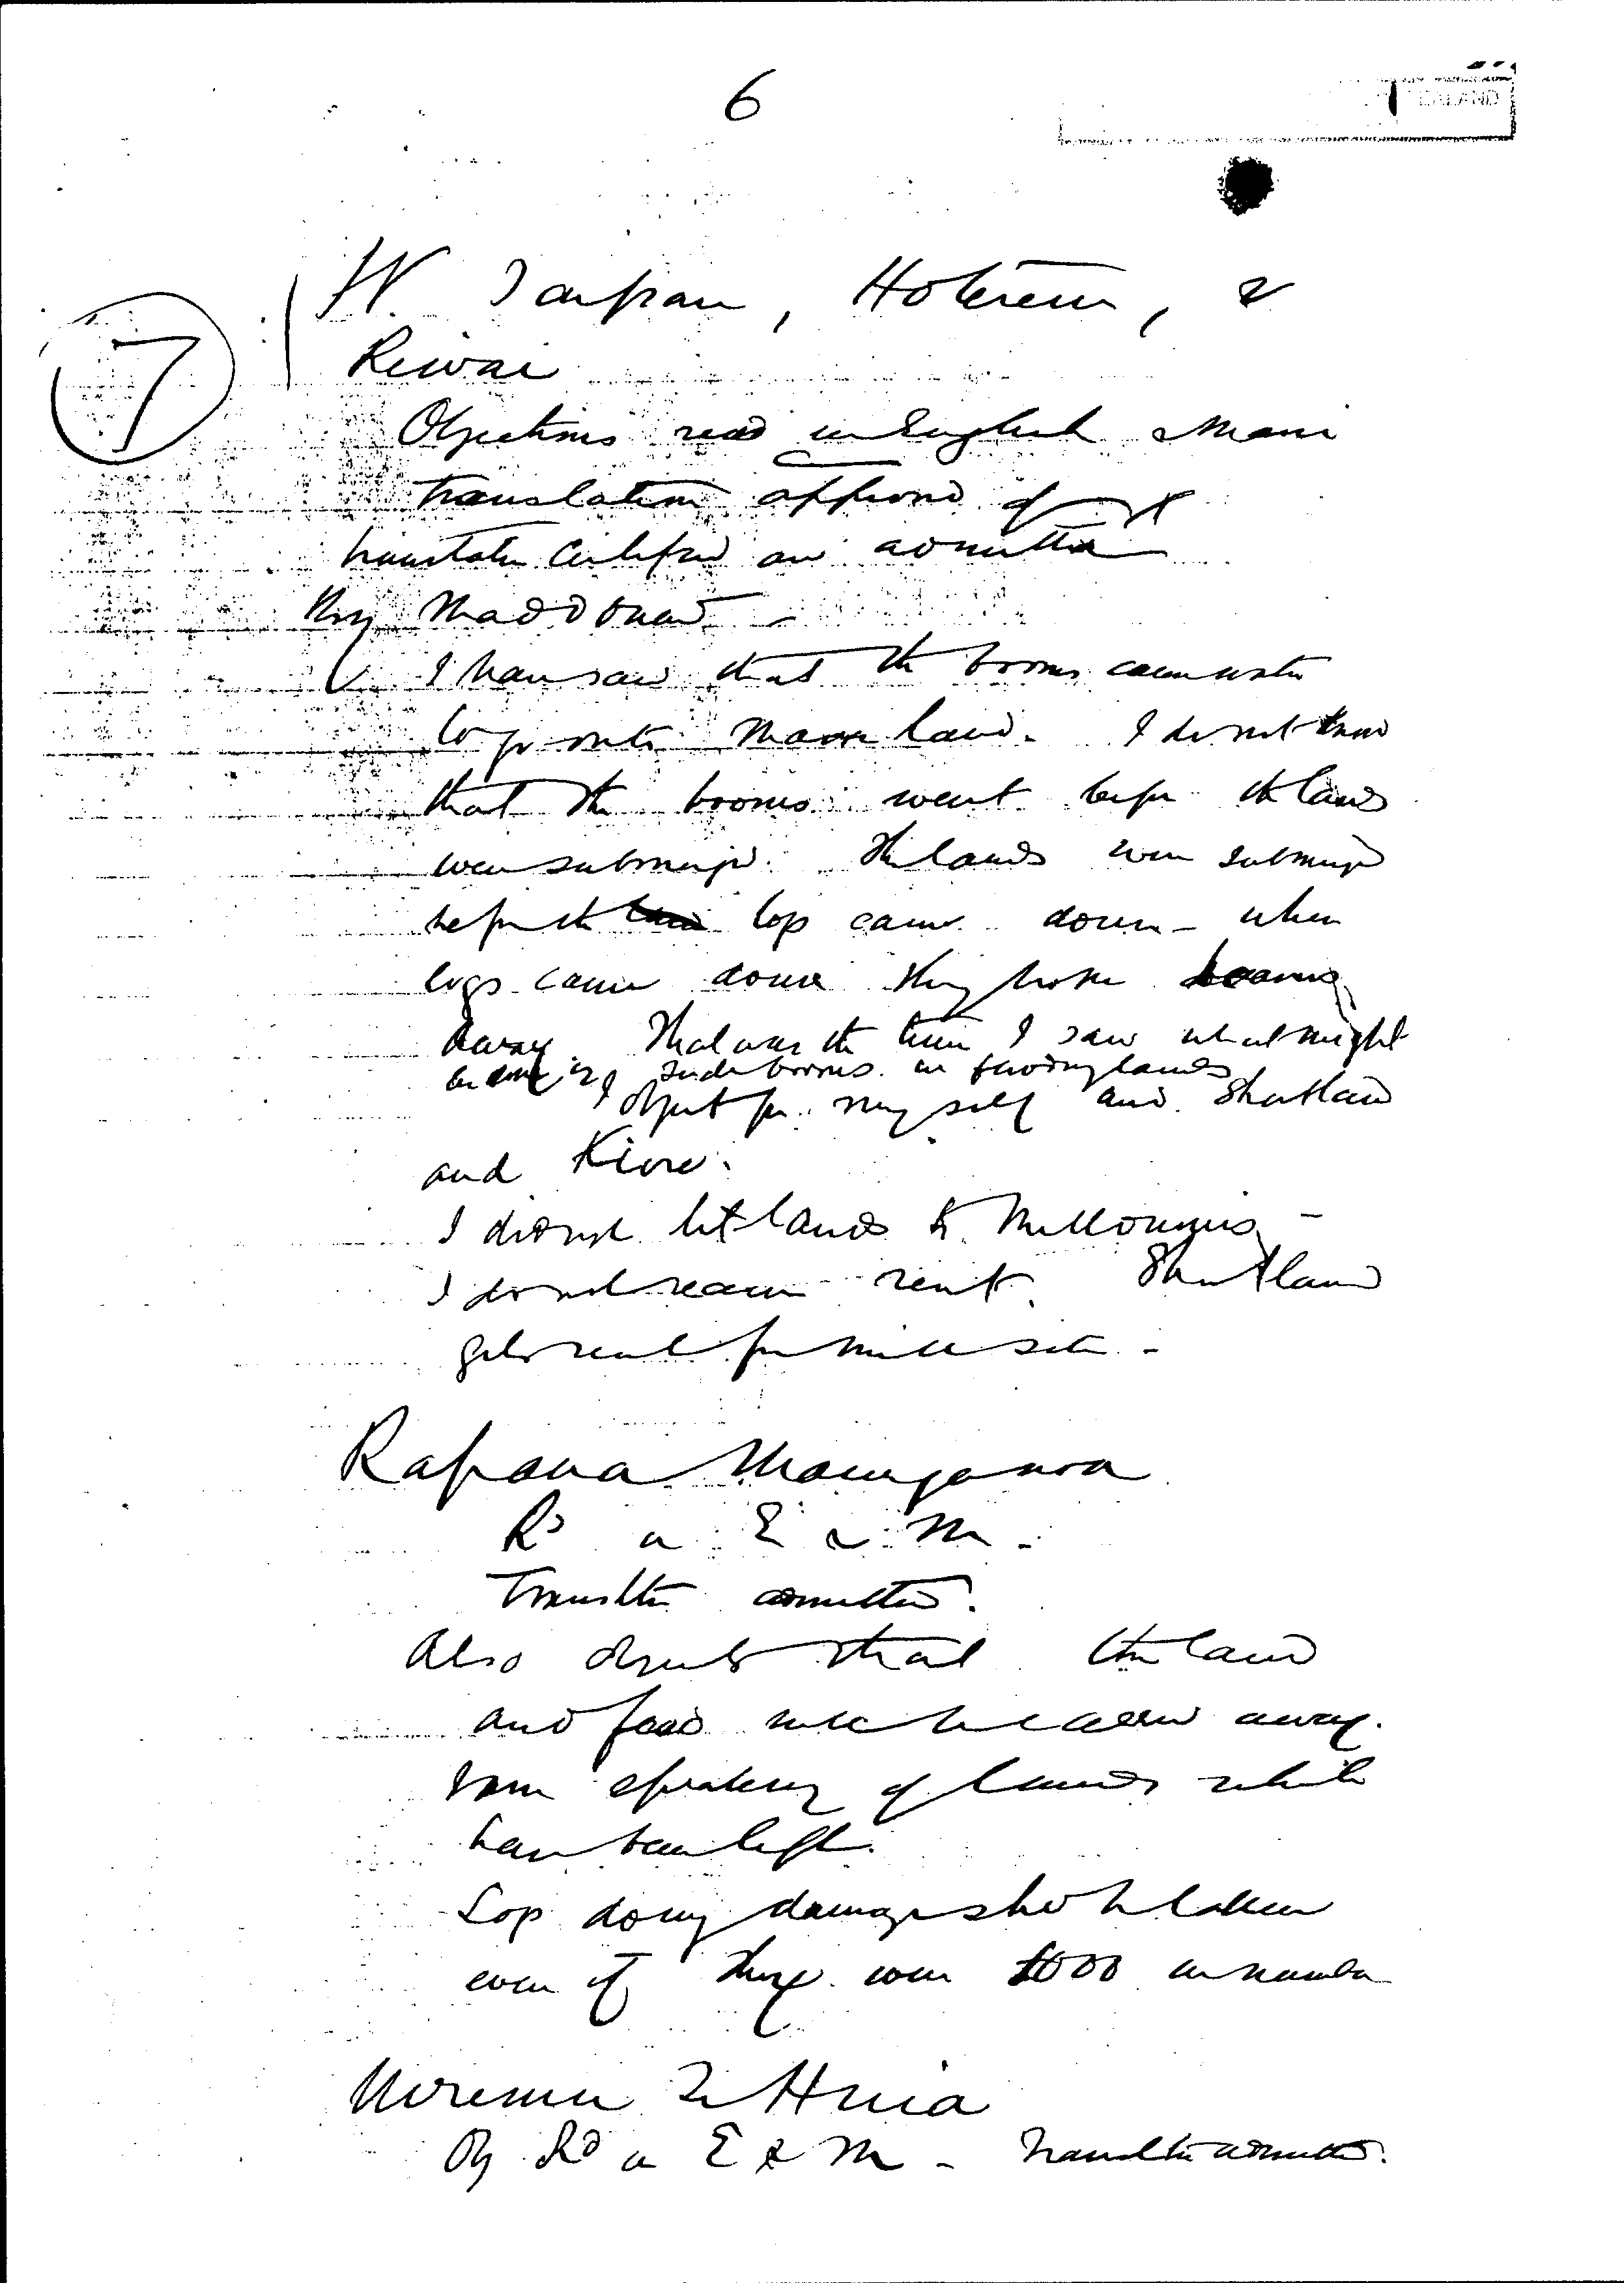 6
7
W. , Hotereni, &
Rewai
Objections read in English & Maori
translation approved of
translation certified and admitted
By MacDonald
I have said that the booms cannot
logs onto Maori land. I do not know
that the booms went before the lands
were submerged. The lands were submerged
before the logs came down - when
logs came down they broke booms
away. That was the time I saw what might
be done side booms in lands
I object for myself and Shortland
and Kiore.
I did not let lands to
I do not receive rent. Shortland
gets rent for mill site -
Rapana Maunganoa
Rd in E & M.
Translation admitted.
Also objects that the land
and food will be carried away.
I am speaking of lands which
have been left.
Logs doing damage shd be taken
even if they were 1000 in number
Wiremu Te Huia
Obj Rd in E & M - translation admitted.